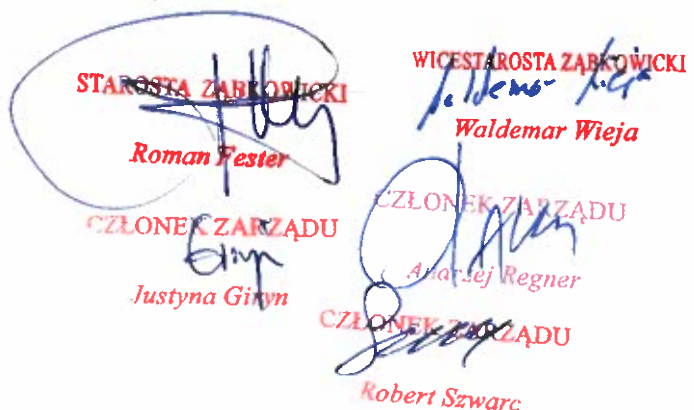 STAROSTA ZĄBKOWICKI
Roman Fester
WICESTAROSTA ZĄBKOWICKI
Waldemar Wieja
Waldemar Wieja
CZŁONEK ZARZĄDU
Giryn
Justyna Giryn
CZŁONEK ZARZĄDU
Andrzej Regner
CZŁONEK ZARZĄDU
Robert Szwarc